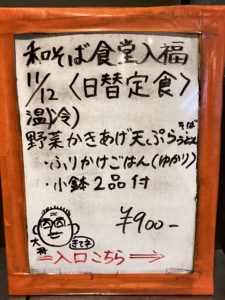 和そば食堂入福
11/12〈日替定食〉
温(冷)
野菜かきあげ天ぷらそばうどん
・ふりかけごはん(ゆかり)
・小鉢2品付
¥900-
大将
きてネ
⇒入口こちら⇒